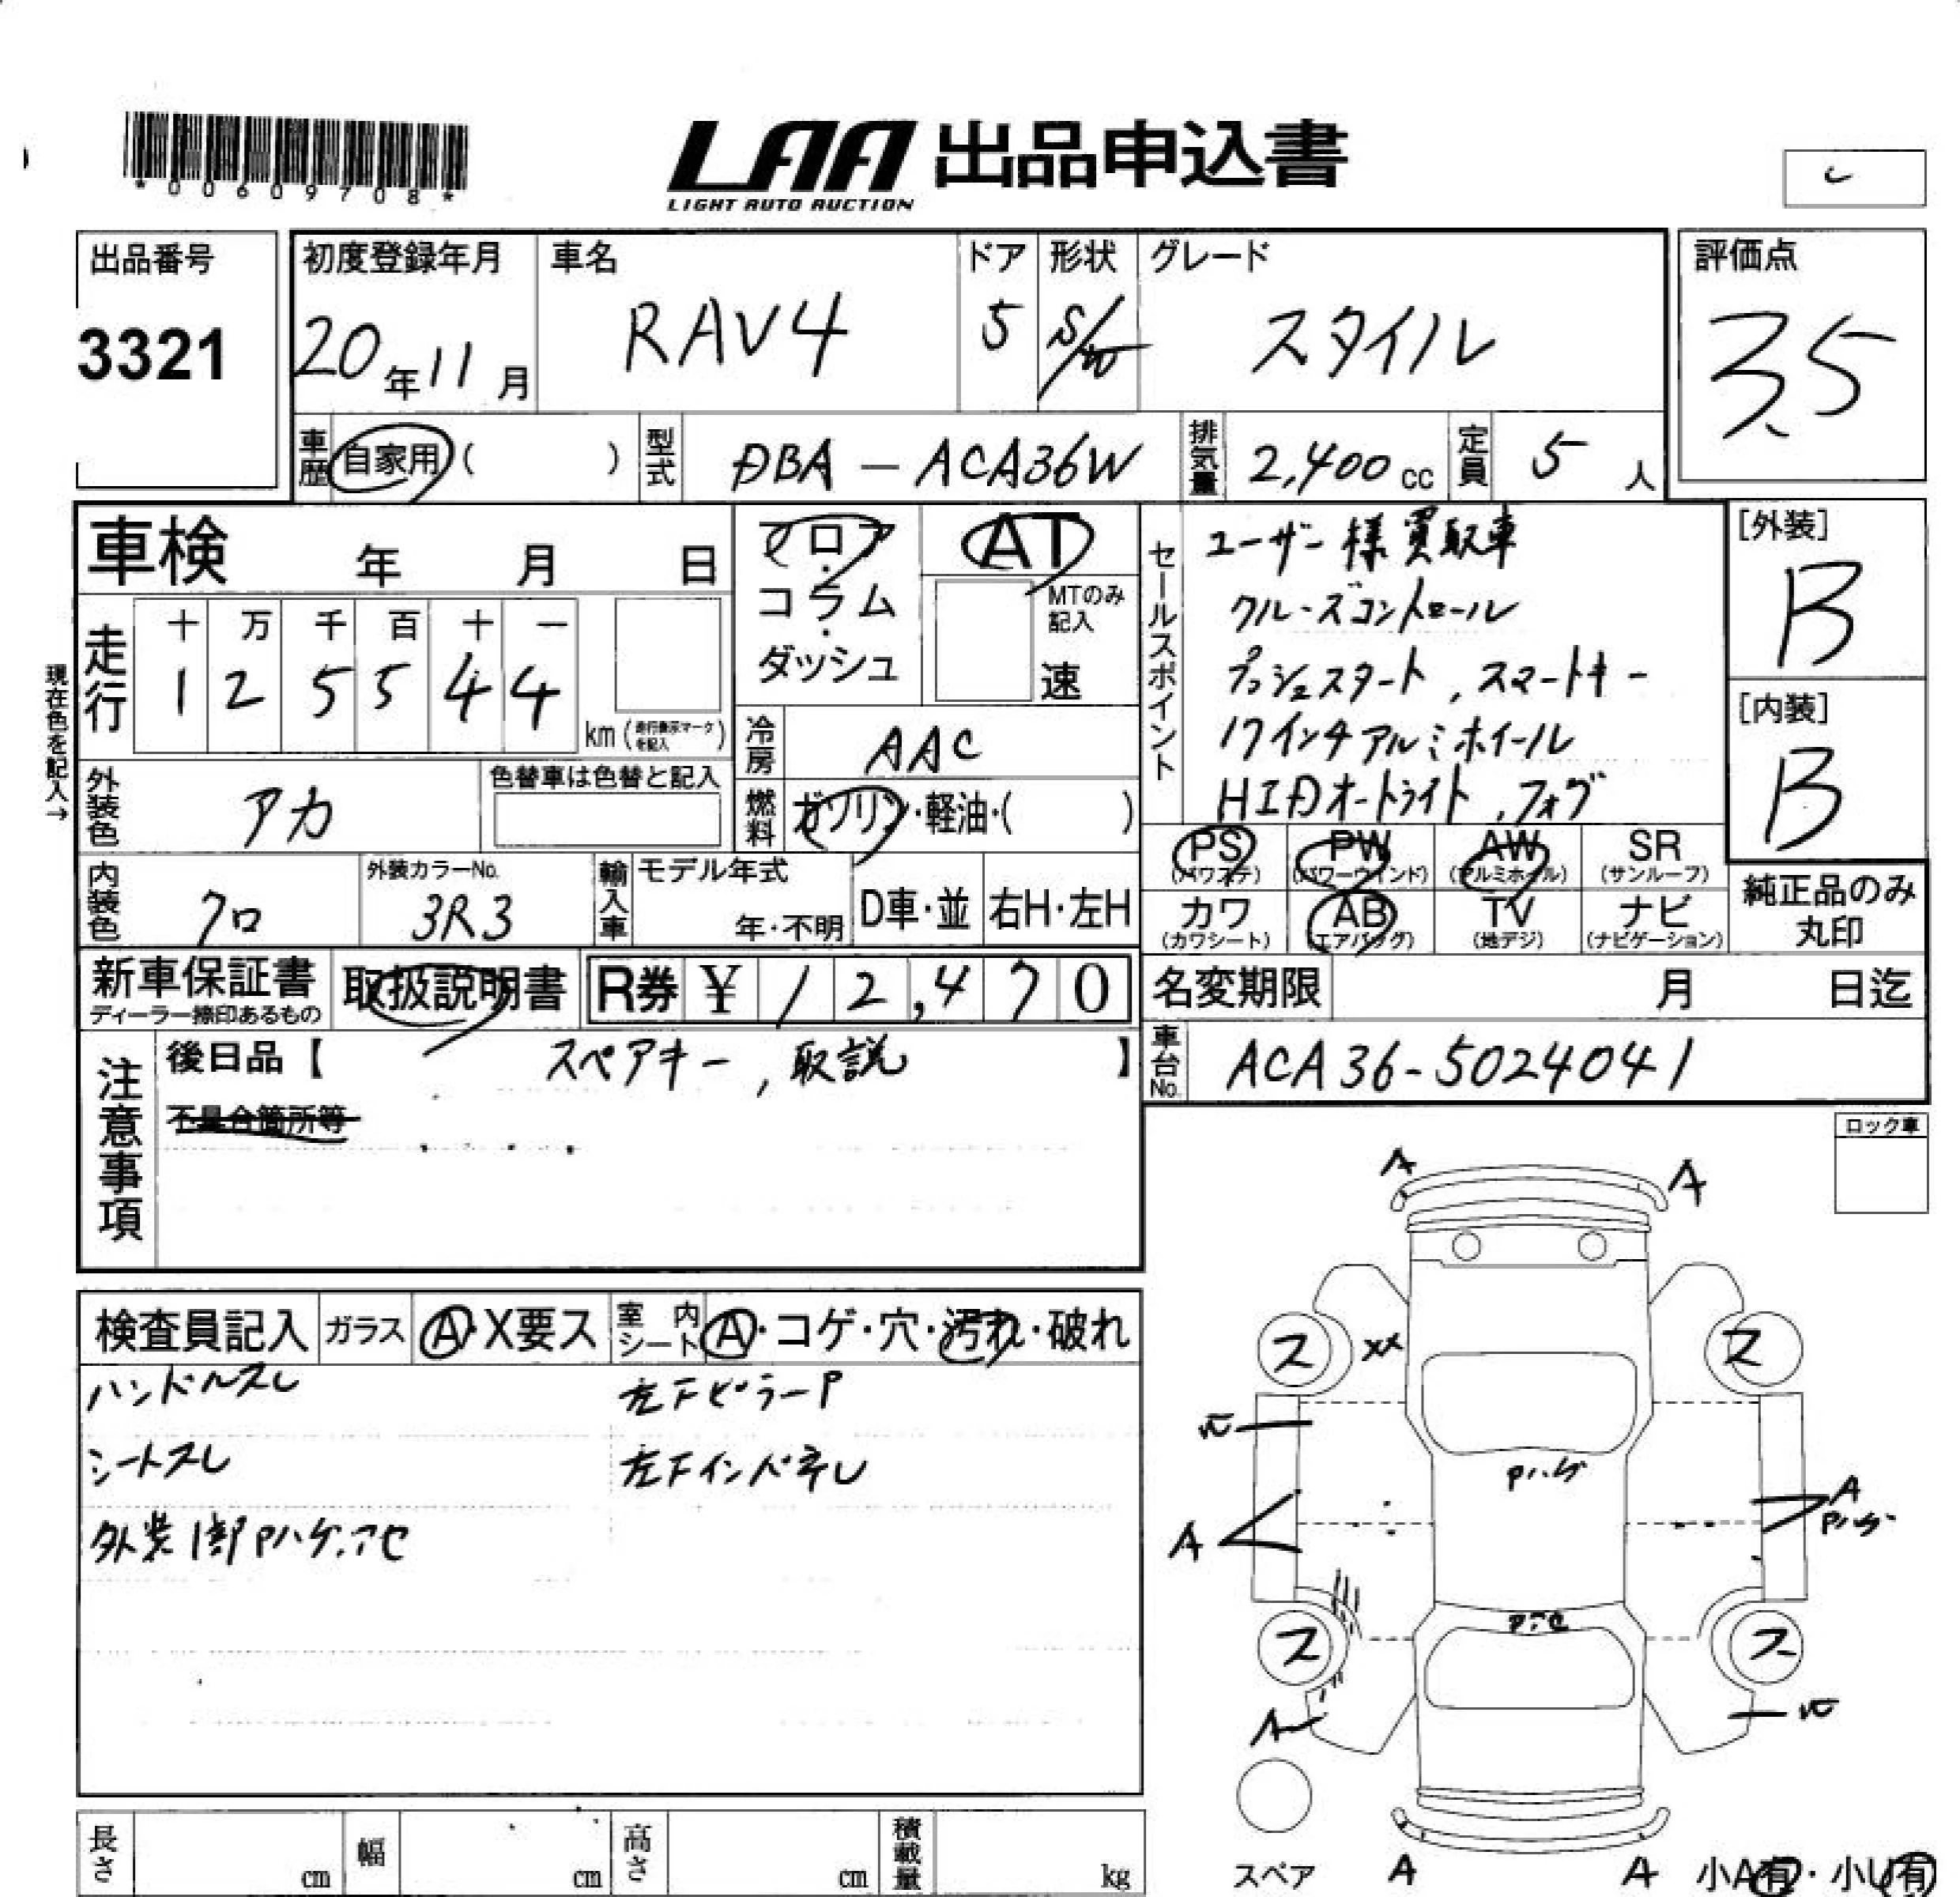 *00609708*
LAA 出品申込書
LIGHT AUTO AUCTION
出品番号
3321
初度登録年月
20年11月
車名
RAV4
ドア
5
形状
S/W
グレード
スタイル
評価点
3.5
車歴
自家用( )
型式
DBA-ACA36W
排気量
2,400cc
定員
5人
車検 年 月 日
フロア・コラム・ダッシュ
AT
MTのみ記入
速
セールスポイント
ユーザー様買取車
クルーズコントロール
プッシュスタート,スマートキー
17インチアルミホイール
HIDオートライト,フォグ
[外装]
B
[内装]
B
現在色を記入→
走行
十 万 千 百 十 一
1 2 5 5 4 4
km(走行表示マークを記入)
冷房
AAC
外装色
アカ
色替車は色替と記入
燃料
ガソリン・軽油・( )
PS(パワステ) PW(パワーウインド) AW(アルミホイール) SR(サンルーフ)
カワ(カワシート) AB(エアバッグ) TV(地デジ) ナビ(ナビゲーション)
純正品のみ丸印
内装色
クロ
外装カラーNo.
3R3
輸入車
モデル年式
年・不明
D車・並
右H・左H
新車保証書
ディーラー捺印あるもの
取扱説明書
R券 ¥12,470
名変期限 月 日迄
注意事項
後日品【スペアキー,取説】
不具合箇所等
車台No.
ACA36-5024041
ロック車
検査員記入
ガラス
A・X要ス
室内シート
A・コゲ・穴・汚れ・破れ
ハンドルスレ
左Fピラー P
シートスレ
左Fインパネル
外装1部Pハゲ.アセ
A A
ス XX ス
Pハゲ
A A
Pハゲ
Pアセ
ス ス
A
スペア
A A
小A有・小U有
長さ cm
幅 cm
高さ cm
積載量 kg